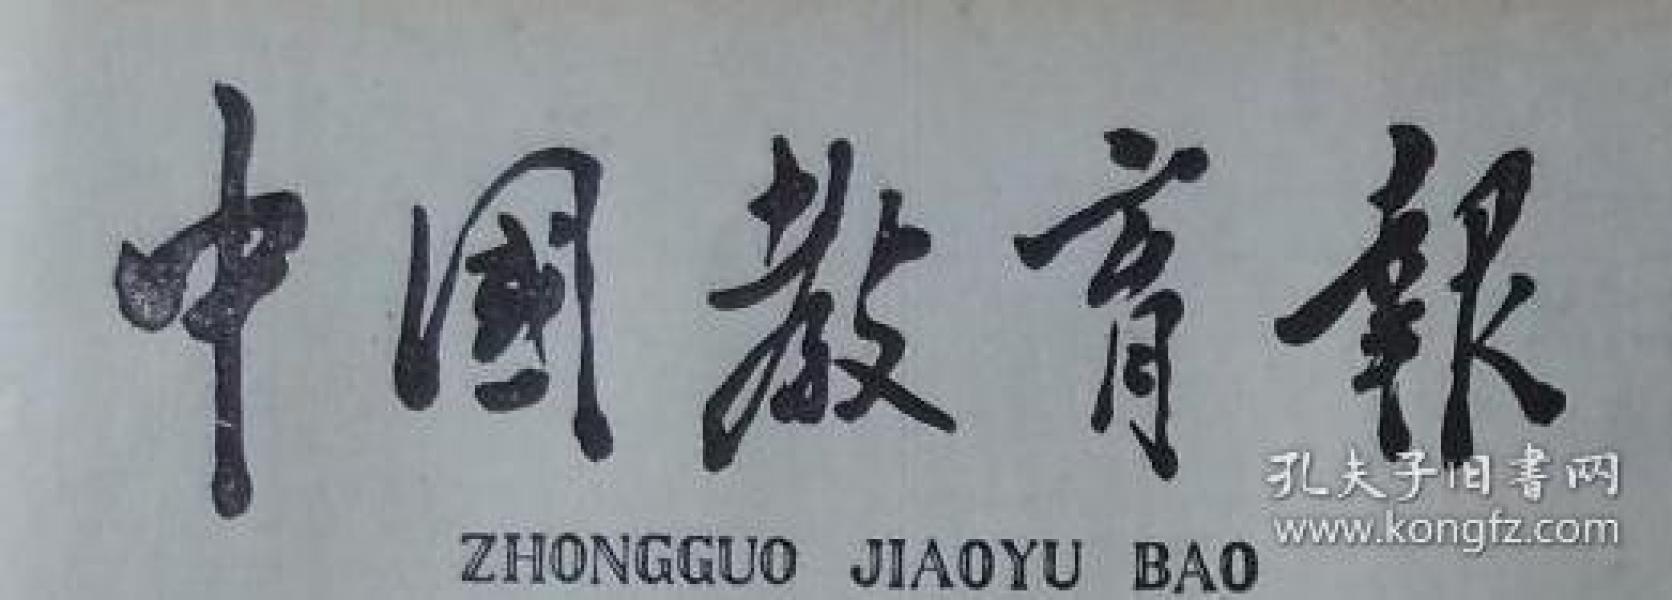 中國教育報
ZHONGGUO JIAOYU BAO
孔夫子旧书网
www.kongfz.com